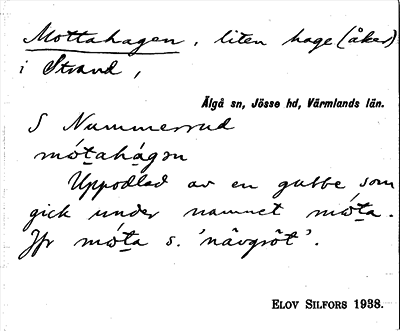 Mottahagen, liten hage (åker)
i Strand,
Älgå sn, Jösse hd, Värmlands län.
S Nummersrud
mótahágɜn
Uppodlad av en gubbe som
gick under namnet móta.
Jfr móta s. 'nävgröt'.
ELOV SILFORS 1938.